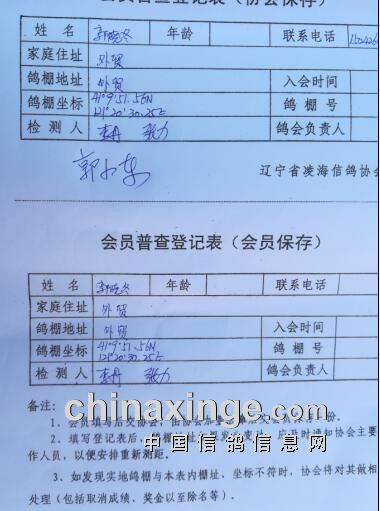 会员普查登记表（协会保存）
姓 名 郭晓冬 年龄 联系电话
家庭住址 外贸
鸽棚地址 外贸 入会时间
鸽棚坐标 41°9′51.56N 121°20′30.25E 鸽 棚 号
检 测 人 李丹 张力 鸽会负责人
辽宁省凌海信鸽协会
会员普查登记表（会员保存）
姓 名 郭晓冬 年龄 联系电话
家庭住址 外贸
鸽棚地址 外贸 入会时间
鸽棚坐标 41°9′51.56N 121°20′30.25E 鸽 棚 号
检 测 人 李丹 张力 鸽会负责人
备注：
1、会员填写后交协会，由协会加盖
chinaxinge.com
2、填写登记表后，
应及时通知协会主要
中国信鸽信息网
作人员，以便安排重新测距。
3、如发现实地鸽棚与本表内棚址、坐标不符时，协会将对其做相
处理（包括取消成绩、奖金以至除名等）。